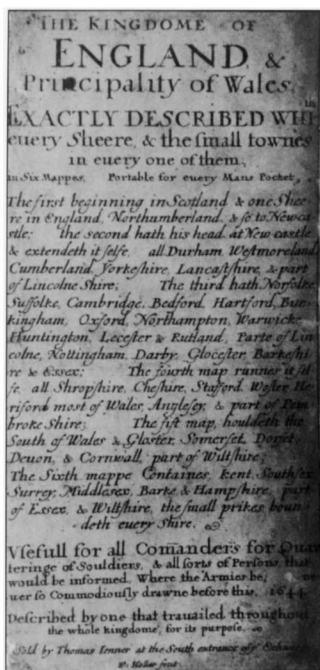 THE KINGDOME OF
ENGLAND, &
Principality of Wales,
EXACTLY DESCRIBED
euery Sheere, & the small townes
in euery one of them,
in Six Mappes, Portable for euery Mans Pocket,
The first beginning in Scotland & one Shee-
re in England, Northumberland, & so to Newca-
stle: the second hath his head at New castle
& extendeth it selfe, all Durham Westmoreland
Cumberland, Yorkeshire, Lancastshire, & part
of Lincolne Shire; The third hath Norfolke
Suffolke, Cambridge, Bedford, Hartford, Buc-
kingham, Oxford, Northampton, Warwicke
Huntington, Lecester & Rutland, Parte of Lin
colne, Nottingham, Darby, Glocester, Barkeshi
re & Essex; The fourth map runnes it sel-
fe, all Shropshire, Cheshire, Stafford, Wester He-
riford most of Wales, Anglesey, & part of Pem
broke Shire; The fift map, houldeth the
South of Wales & Gloster, Somerset, Dorset,
Deuon, & Cornwall, part of Wiltshire;
The Sixth mappe Containes, kent, Southsex
Surrey, Middlesex, Barke & Hampshire, part
of Essex, & Wiltshire, the small prikes boun-
deth euery Shire.
Vsefull for all Comanders for Quar
teringe of Souldiers, & all sorts of Persons, that
would be informed, Where the Armies be;
uer so Commodiously drawne before this, 1644
Described by one that trauailed throughout
the whole kingdome, for its purpose,
Sold by Thomas Ienner at the South entrance of
W. Hollar fecit